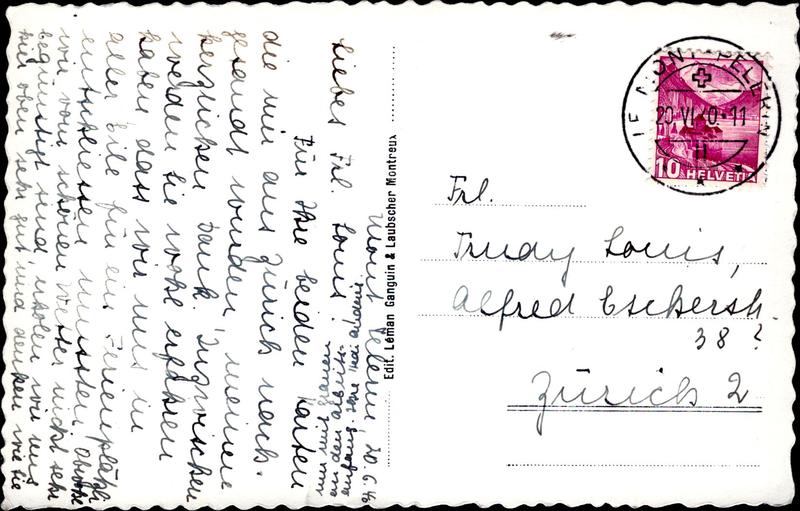 Mont Pelerin, 20.6.40
Liebes Frl. Louis!
Für Ihre beiden Karten
die mir aus Zürich nach-
gesandt wurden, meinen
herzlichen Dank. Inzwischen
werden Sie wohl erfahren
haben dass wir uns in
aller Eile für ein Ferienplätzli
entschliessen mussten. Obwohl
wir vom schönen Wetter nicht sehr
begünstigt sind, erholen wir uns
hier oben sehr gut und denken wie Sie
nur mit
an den
Edit. Léman Ganguin & Laubscher Montreux
LE MONT PELERIN
20.VI.40-11
10 HELVETIA
Frl.
Trudy Louis,
Alfred Escherstr.
38 ?
Zürich 2